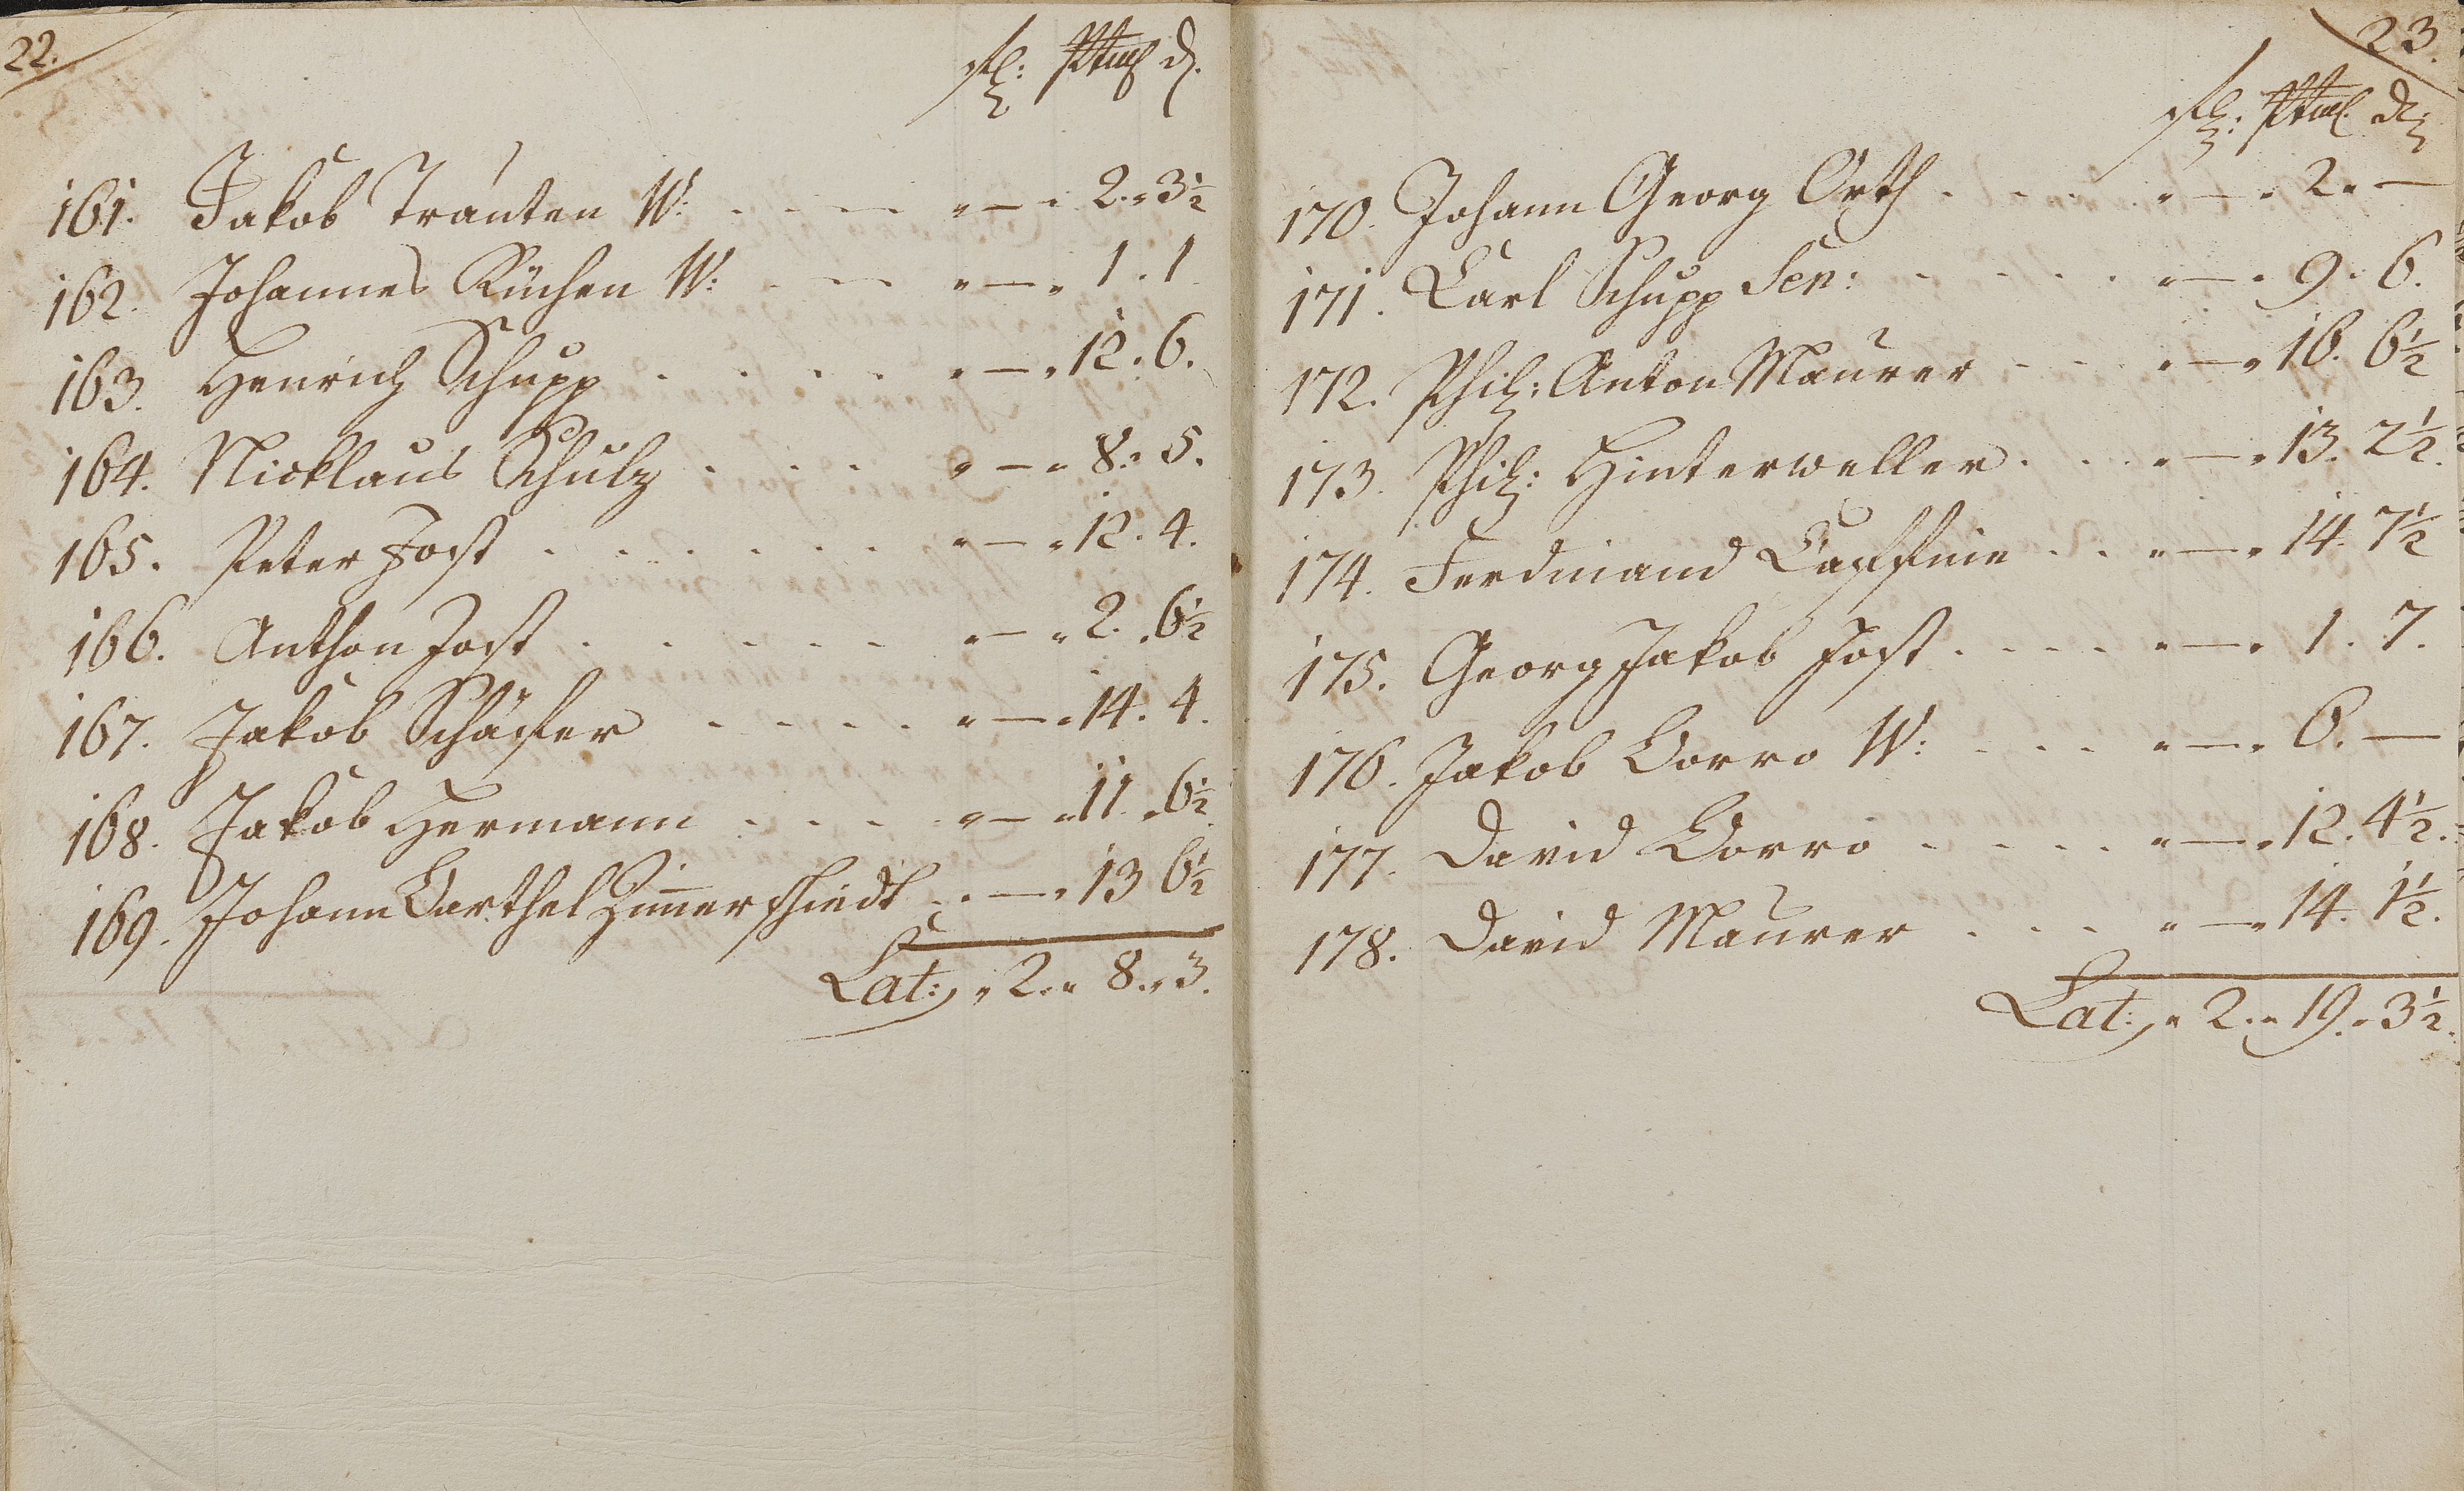 22.
fl: Ptml d.
161. Jakob Trauten W: . . — " — " 2. " 3½
162. Johannes Küchen W: . . — " — " 1 . 1
163. Henrich Schupp . . . . . " — " 12. 6.
164. Nicklaus Schulz . . . . " — " 8. " 5.
165. Peter Jost . . . . . . " — " 12. 4.
166. Anthon Jost . . . . . " — " 2. " 6½
167. Jakob Schäfer . . . . " — " 14. 4.
168. Jakob Hermann . . . . " — " 11. " 6½
169. Johann Barthel Zim̄erschiedt . " — " 13 6½
Lat: " 2. " 8. " 3.
23.
fl: Ptml. d:
170. Johann Georg Orth . . . . " — " 2. " —
171. Carl Schupp Sen: . . . . " — " 9. 6.
172. Phil: Anton Maurer . . . " — " 16. 6½
173. Phil: Hinterweller . . . " — " 13. 2½.
174. Ferdinand . . " — " 14. 7½
175. Georg Jakob Jost . . . . " — " 1. 7.
176. Jakob Borro W: . . . " — " 6. —
177. David Borro . . . . " — " 12. 4½.
178. David Maurer . . . " — " 14. 1½.
Lat: " 2. " 19. " 3½.